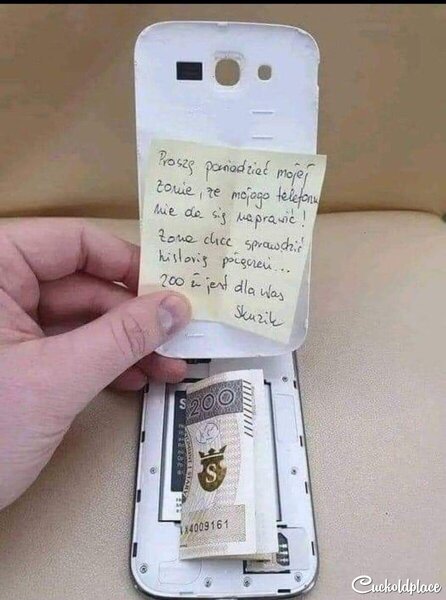 Proszę powiedzieć mojej
żonie, że mojego telefonu
nie da się naprawić!
Żona chce sprawdzić
historię połączeń...
200 zł jest dla Was
Skuzik
200
S
A4009161
Cuckoldplace